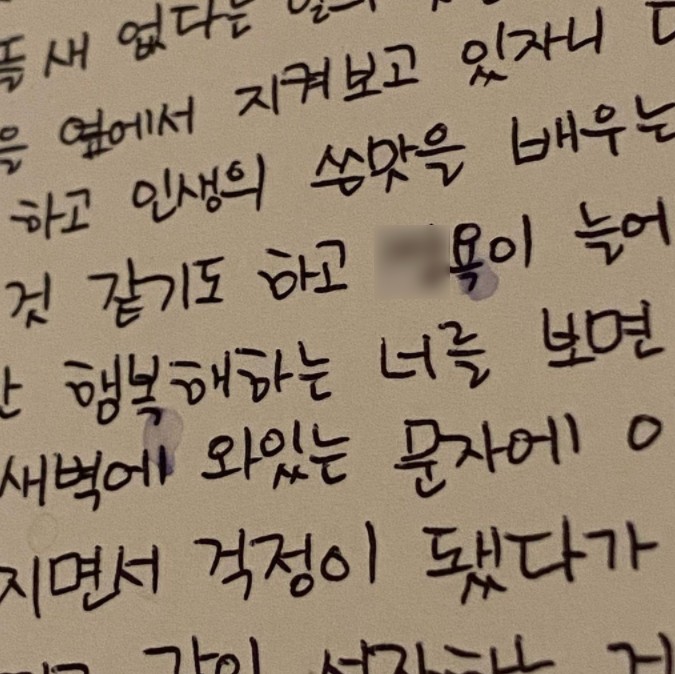 틈새 없다는
을 옆에서 지켜보고 있자니
하고 인생의 씁맛을 배우는
것 같기도 하고 욕이 늘어
행복해하는 너를 보면
새벽에 와있는 문자에
지면서 걱정이 됐다가
같이 성장하는